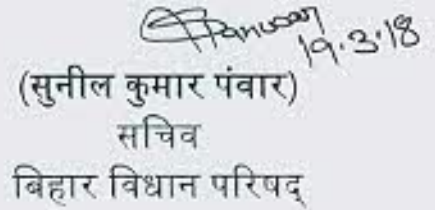 Panwar
19.3.18
(सुनील कुमार पंवार)
सचिव
बिहार विधान परिषद्